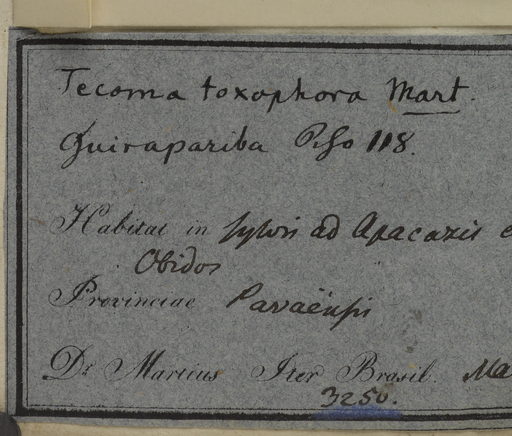 Tecoma toxophora Mart.
Guirapariba Piso 118.
Habitat in sylvis ad Apacaxis e
Obidos
Provinciae Paraënsis
Dr. Martius Iter Brasil. Ma
3250.